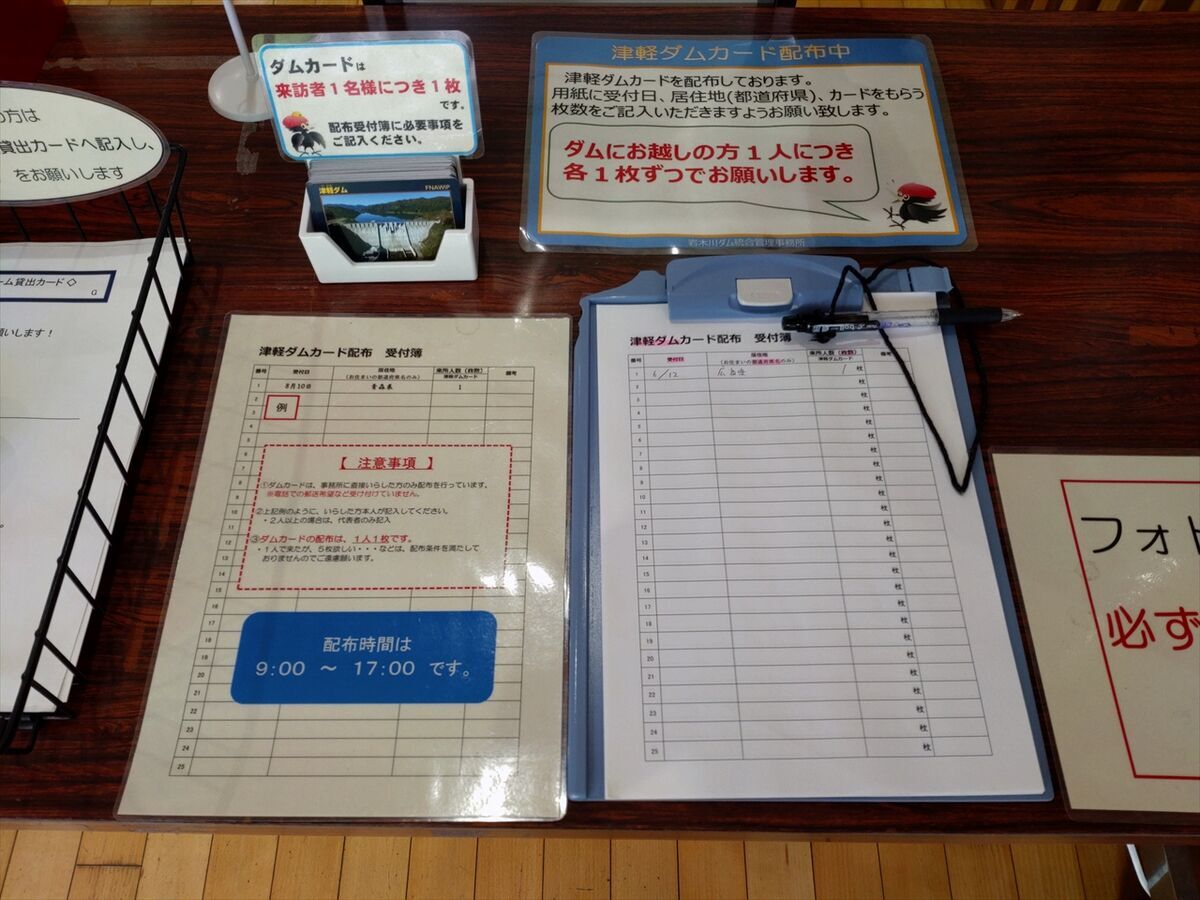 の方は
貸出カードへ記入し、
をお願いします
ーム貸出カード◇
G
願いします！
ダムカードは
来訪者1名様につき1枚
です。
配布受付簿に必要事項を
ご記入ください。
津軽ダム
FNAWIP
津軽ダムカード配布中
津軽ダムカードを配布しております。
用紙に受付日、居住地(都道府県)、カードをもらう
枚数をご記入いただきますようお願い致します。
ダムにお越しの方1人につき
各1枚ずつでお願いします。
岩木川ダム統合管理事務所
津軽ダムカード配布 受付簿
番号 受付日 居住地 来所人数（枚数） 備考
（お住まいの都道府県名のみ） 津軽ダムカード
1 8月10日 青森県 1
2
3 例
4
5
6
【 注意事項 】
①ダムカードは、事務所に直接いらした方のみ配布を行っています。
※電話での郵送希望など受け付けていません。
②上記例のように、いらした方本人が記入してください。
・2人以上の場合は、代表者のみ記入
③ダムカードの配布は、1人1枚です。
・1人で来たが、5枚欲しい・・・などは、配布条件を満たして
おりませんのでご遠慮願います。
8
9
10
11
12
13
14
15
16
17
18
19
20
21
22
23
24
25
配布時間は
9:00 ～ 17:00 です。
津軽ダムカード配布 受付簿
番号 受付日 居住地 来所人数（枚数） 備考
（お住まいの都道府県名のみ） 津軽ダムカード
1 6/12 広島県 1 枚
2 枚
3 枚
4 枚
5 枚
6 枚
7 枚
8 枚
9 枚
10 枚
11 枚
12 枚
13 枚
14 枚
15 枚
16 枚
17 枚
18 枚
19 枚
20 枚
21 枚
22 枚
23 枚
24 枚
25 枚
フォト
必ず